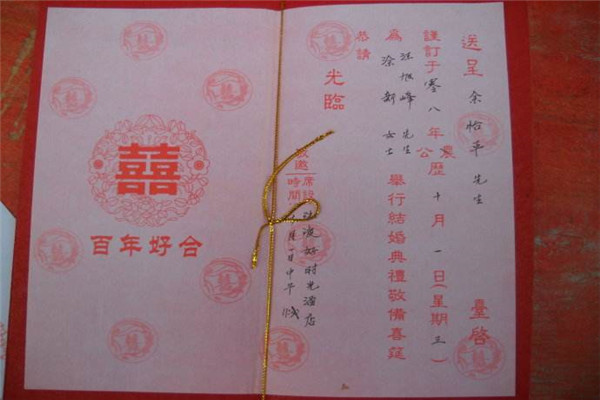 送呈 余怡平 先生 臺啓
謹訂于 零八 年 公農 曆 十 月 一 日(星期 三 )
為 旭峰 先生
涂 女士 舉行結婚典禮敬備喜筵
恭請
光臨
邀
席設 流好时光酒店
時間 月一日中午
囍
百年好合